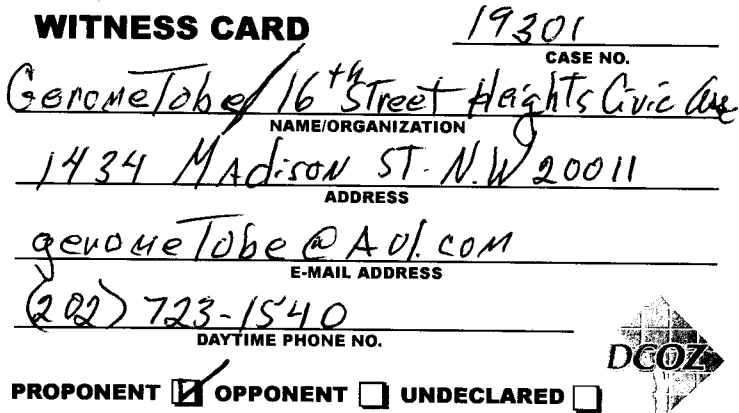 WITNESS CARD 19301
CASE NO.
GeromeTobe/16th Street Heights Civic Ass
NAME/ORGANIZATION
1434 Madison ST. N.W 20011
ADDRESS
geromeTobe@Aol.com
E-MAIL ADDRESS
(202) 723-1540
DAYTIME PHONE NO.
DCOZ
PROPONENT OPPONENT UNDECLARED